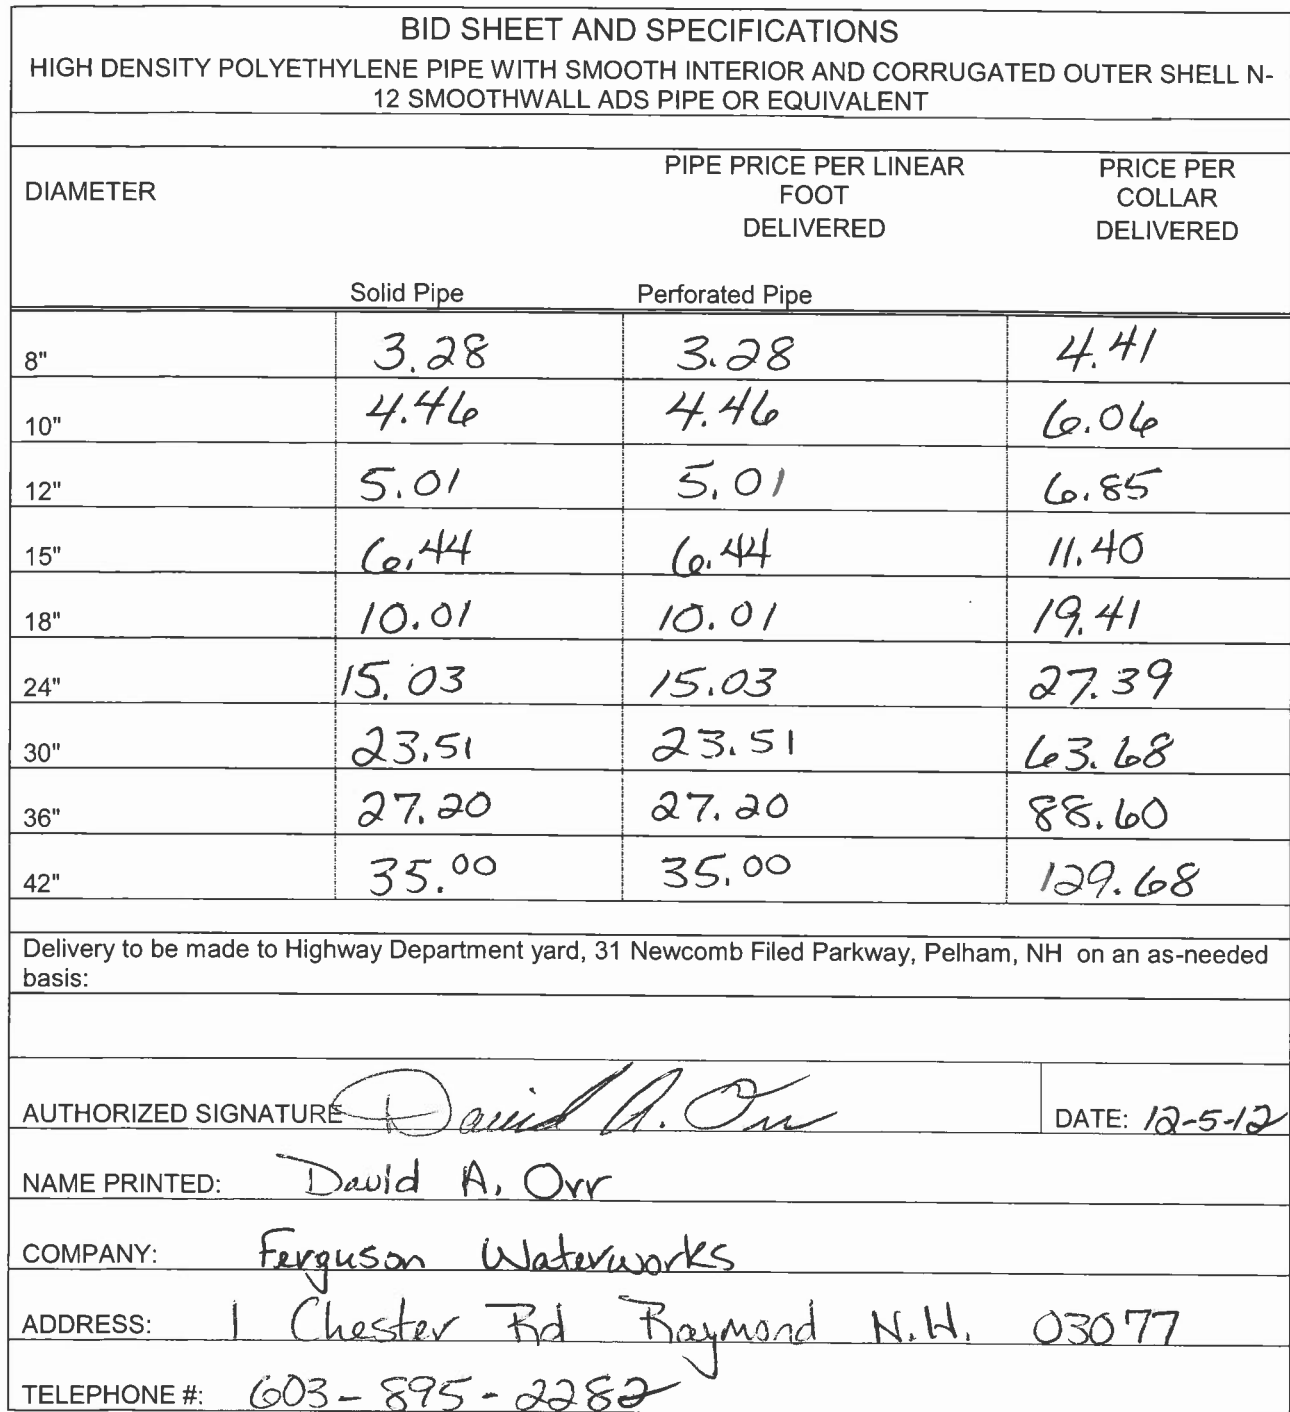 BID SHEET AND SPECIFICATIONS
HIGH DENSITY POLYETHYLENE PIPE WITH SMOOTH INTERIOR AND CORRUGATED OUTER SHELL N-
12 SMOOTHWALL ADS PIPE OR EQUIVALENT
DIAMETER PIPE PRICE PER LINEAR FOOT DELIVERED PRICE PER COLLAR DELIVERED
Solid Pipe Perforated Pipe
8" 3.28 3.28 4.41
10" 4.46 4.46 6.06
12" 5.01 5.01 6.85
15" 6.44 6.44 11.40
18" 10.01 10.01 19.41
24" 15.03 15.03 27.39
30" 23.51 23.51 63.68
36" 27.20 27.20 88.60
42" 35.00 35.00 129.68
Delivery to be made to Highway Department yard, 31 Newcomb Filed Parkway, Pelham, NH on an as-needed
basis:
AUTHORIZED SIGNATURE David A. Orr DATE: 12-5-12
NAME PRINTED: David A. Orr
COMPANY: Ferguson Waterworks
ADDRESS: 1 Chester Rd Raymond N.H. 03077
TELEPHONE #: 603-895-2282